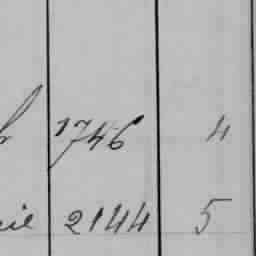 1746 4
2144 5